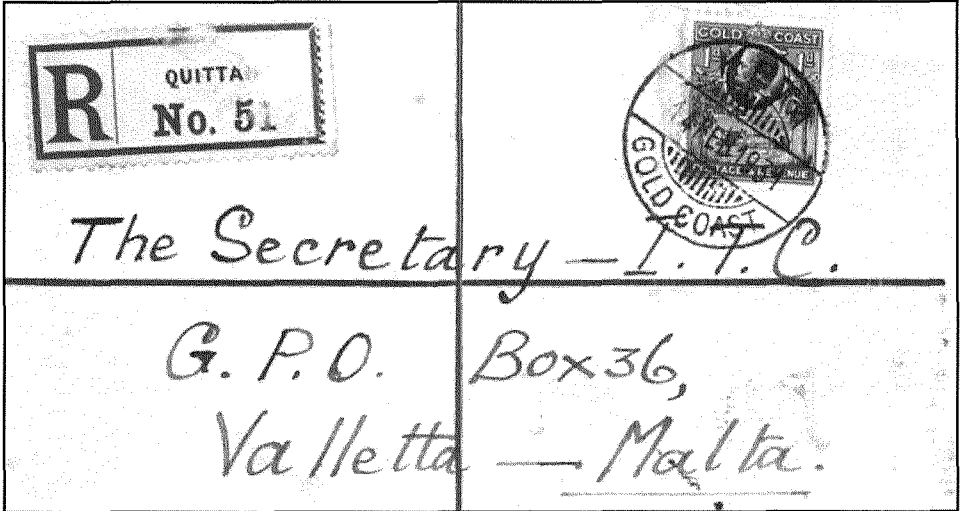 R QUITTA
No. 51
GOLD COAST
1D 1D
GOLD COAST
The Secretary — I.T.C.
G.P.O. Box 36,
Valletta — Malta.